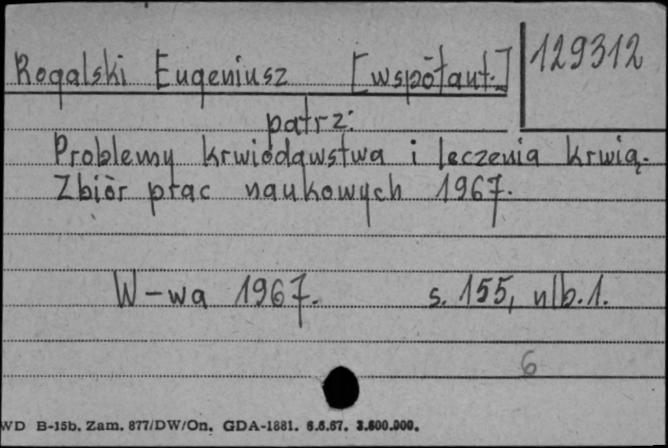 Rogalski Eugeniusz [współaut.] 129312
patrz:
Problemy krwiodawstwa i leczenia krwią.
Zbiór prac naukowych 1967.
W-wa 1967. s. 155, nlb. 1.
6
WD B-15b. Zam. 877/DW/On. GDA-1881. 6.6.67. 3.800.000.